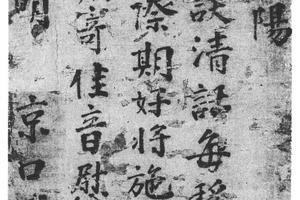 陽
談清話每
際期好將施
寄佳音慰
明 京口